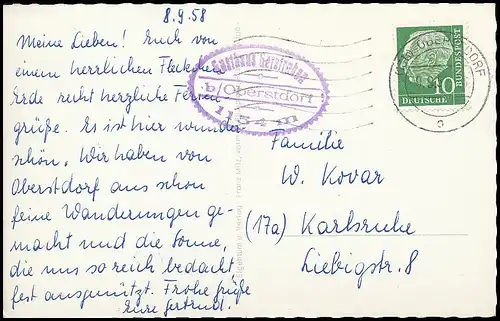 8.9.58
Meine Lieben! Euch von
einem herrlichen Flecken
Erde recht herzliche Ferien
grüße. Es ist hier wunder
schön. Wir haben von
Oberstdorf aus schon
feine Wanderungen ge-
macht und die Sonne,
die uns so reich bedacht,
fest ausgenützt. Frohe Grüße
Eure Gertrud.
b/Oberstdorf
1154 m
OBERSTDORF
10
DEUTSCHE
BUNDESPOST
Familie
W. Kovar
(17a) Karlsruhe
Liebigstr. 8